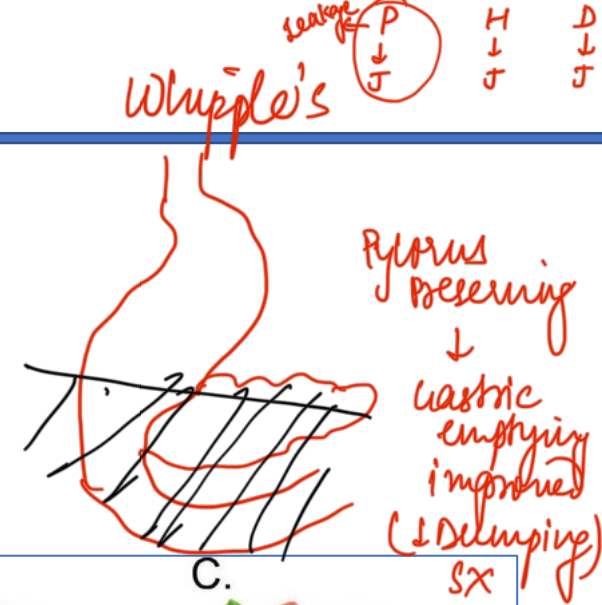 Leakage ← P H D
↓ ↓ ↓
J J J
Whipple's
Pylorus
Preserving
↓
Gastric
emptying
improved
(↓Dumping)
SX
C.